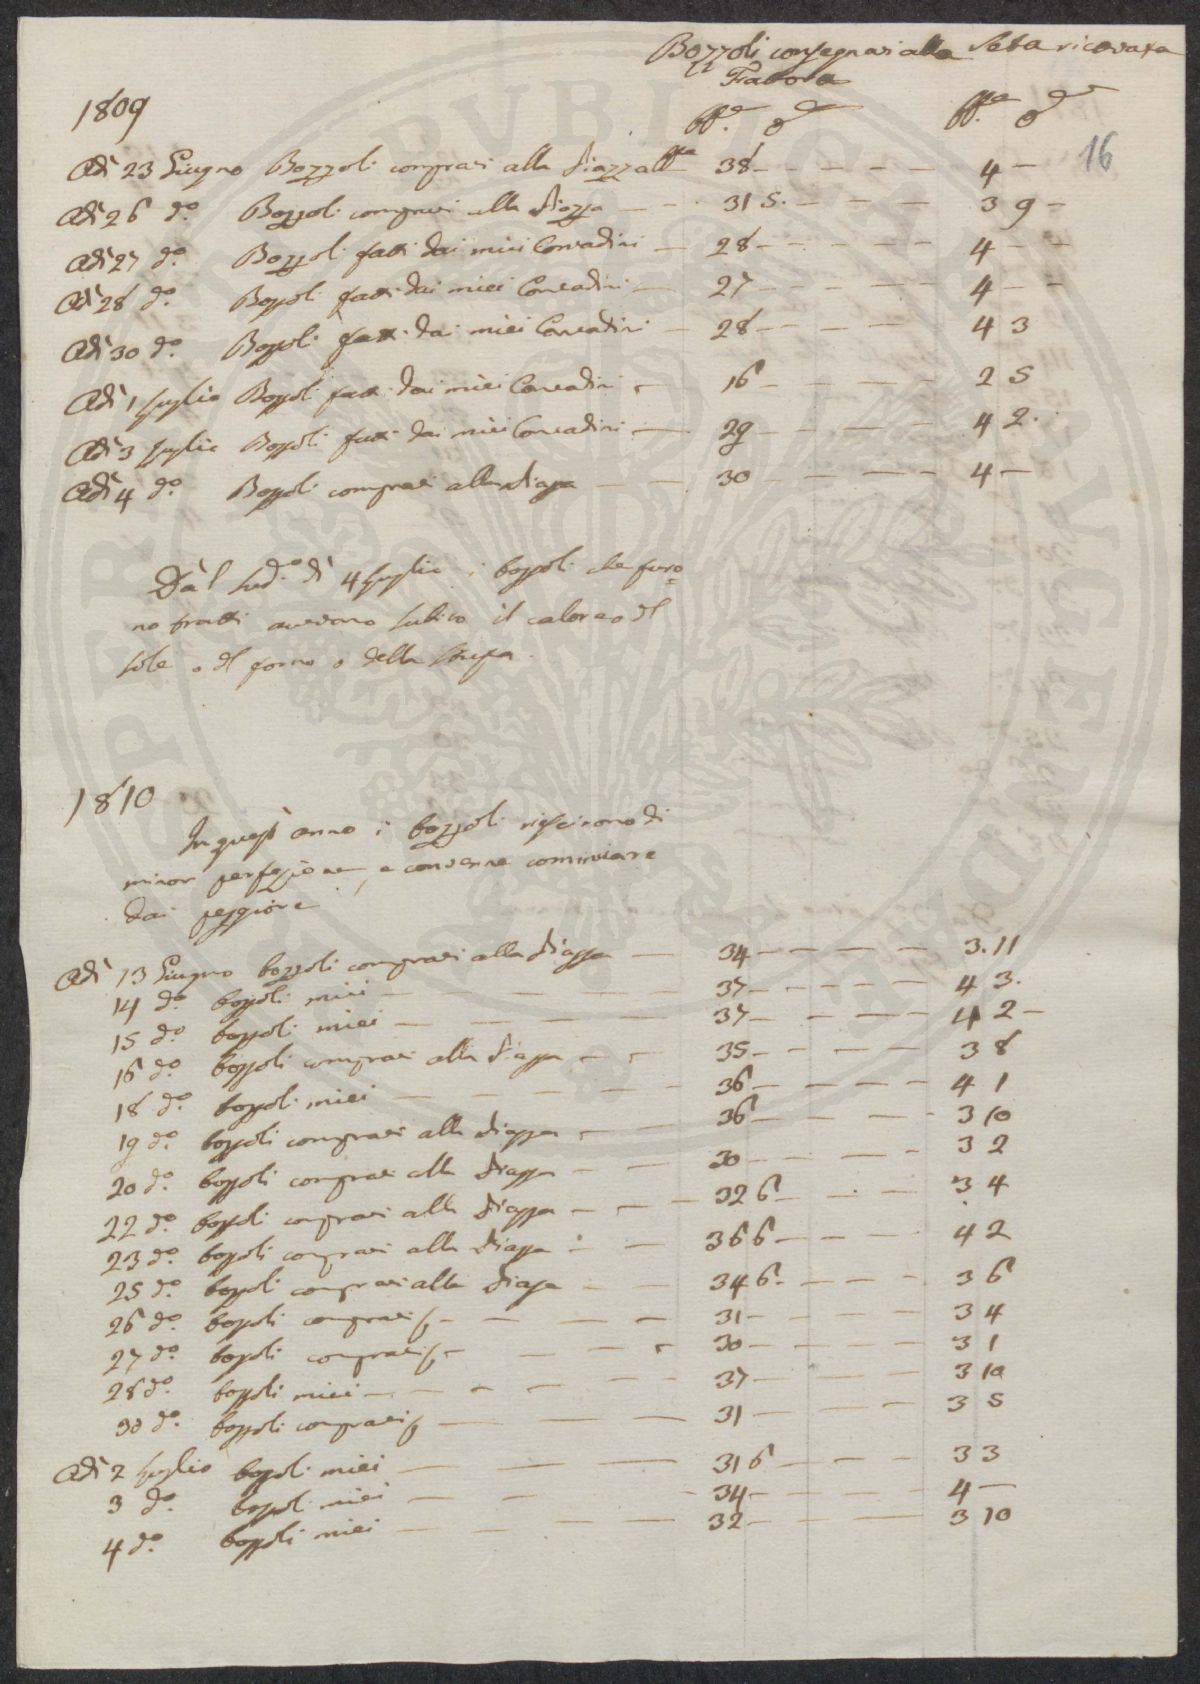 Bozzoli consegnati alla Seta ricavata
Trattora
1809
16
Adì 23 Giugno Bozzoli comprati alla Piazza 38 - - - - - 4 -
Adì 26 do. Bozzoli comprati alla Piazza - - 31 5. - - - 3 9 -
Adì 27 do. Bozzoli fatti dai miei Contadini - 28 - - - - 4 - -
Adì 28 do. Bozzoli fatti dai miei Contadini - 27 - - - - 4 - -
Adì 30 do. Bozzoli fatti dai miei Contadini - 28 - - - - 4 3
Adì 1 Luglio Bozzoli fatti dai miei Contadini - 16 - - - - 2 5
Adì 3 Luglio Bozzoli fatti dai miei Contadini - 29 - - - - 4 2.
Adì 4 do. Bozzoli comprati alla Piazza - - 30 - - - - 4 -
Dal sudo. dì 4 Luglio i bozzoli che furo=
no tratti avevano subito il calore o del
sole o del forno o della stufa.
1810
In quest' anno i bozzoli riescirono di
minor perfezione, e convenne cominciare
dai peggiori
Adì 13 Giugno bozzoli comprati alla Piazza - 34 - - - - 3. 11
14 do. bozzoli miei - - - - 37 - - - - 4 3.
15 do. bozzoli miei - - - - 37 - - - - 4 2 -
16 do. bozzoli comprati alla Piazza - - 35 - - - - 3 8
18 do. bozzoli miei - - - - 36 - - - - 4 1
19 do. bozzoli comprati alla Piazza - - 36 - - - - 3 10
20 do. bozzoli comprati alla Piazza - - 30 - - - - 3 2
22 do. bozzoli comprati alla Piazza - - - 32 6 - - - 3 4
23 do. bozzoli comprati alla Piazza - - 36 6 - - - 4 2
25 do. bozzoli comprati alla Piazza - - 34 6 - - - 3 6
26 do. bozzoli comprati - - - - 31 - - - - 3 4
27 do. bozzoli comprati - - - - 30 - - - - 3 1
28 do. bozzoli miei - - - - 37 - - - - 3 10
30 do. bozzoli comprati - - - - 31 - - - - 3 5
Adì 2 Luglio bozzoli miei - - - 31 6 - - - 3 3
3 do. bozzoli miei - - - - 34 - - - - 4 -
4 do. bozzoli miei - - - - 32 - - - - 3 10